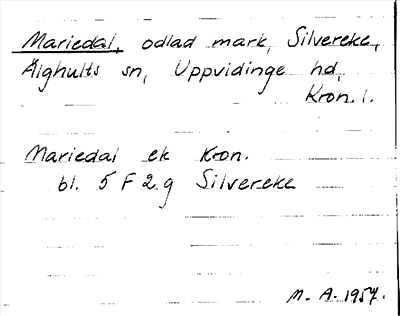 Mariedal, odlad mark, Silvereke,
Älghults sn, Uppvidinge hd,
Kron. l.
Mariedal ek Kron.
bl. 5 F 2 g Silvereke
M. A. 1957.